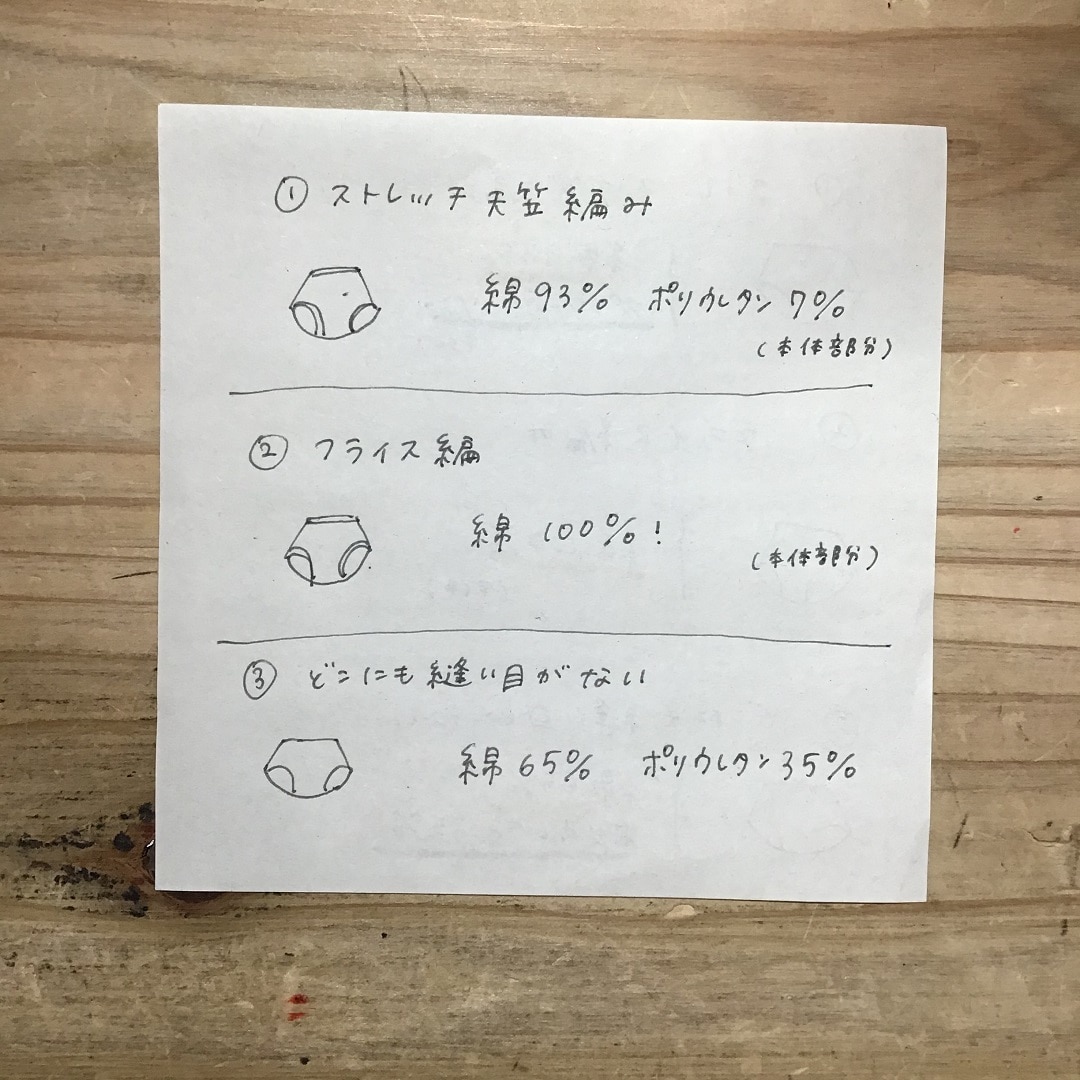 ① ストレッチ天笠編み
綿93% ポリウレタン7%
(本体部分)
② フライス編
綿 100%!
(本体部分)
③ どこにも縫い目がない
綿65% ポリウレタン35%